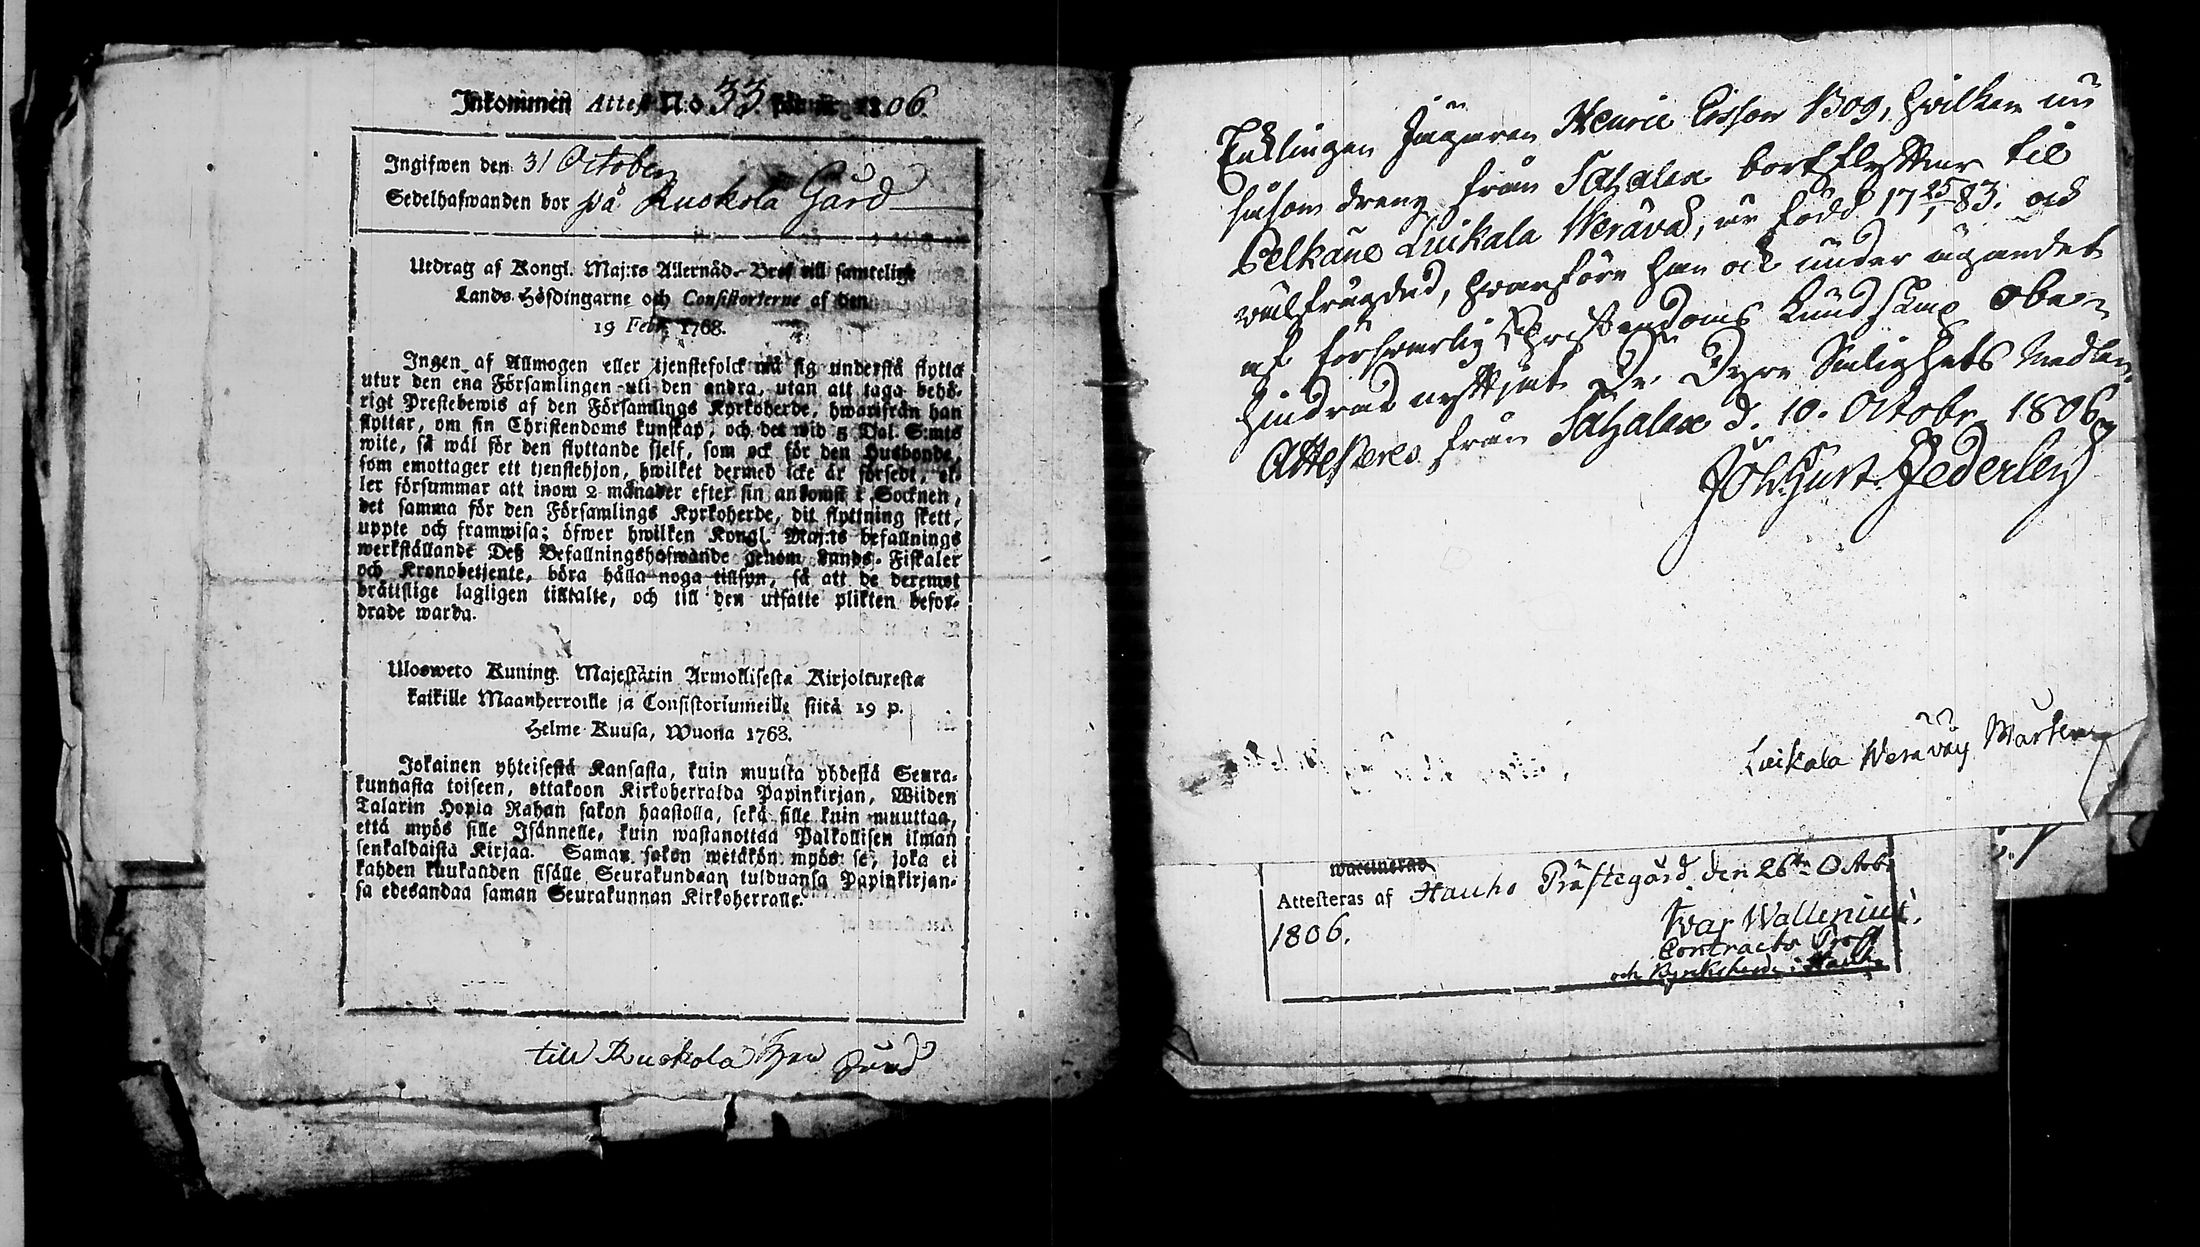 Inkommen Attest N:o 33 för år 1806.
Ingifwen den 31 October
Sedelhafwanden bor på Ruokola Gård
Utdrag af Kongl. Maj:ts Allernåd. Bref till samtelige
Lands-Höfdingarne och Consistorierne af den
19 Febr. 1768.
Ingen af Allmogen eller tjenstefolck må sig understå flytta
utur den ena Församlingen uti den andra, utan att taga behö-
rigt Prestebewis af den Församlings Kyrkoherde, hwarifrån han
flyttar, om sin Christendoms kunskap, och det wid 5 Dal. S:mts
wite, så wäl för den flyttande sjelf, som ock för den Husbonde,
som emottager ett tjenstehjon, hwilket dermed icke är försedt, el-
ler försummar att inom 2 månader efter sin ankomst i Socknen,
det samma för den Församlings Kyrkoherde, dit flyttning skett,
uppte och framwisa; öfwer hwilken Kongl. Maj:ts befallnings
werkställande Deß Befallningshafwande genom Lands-Fiskaler
och Kronobetjente, böra hålla noga tillsyn, så att de deremot
bråttslige lagligen tilltalte, och till den utsatte plikten befor-
drade warda.
Ulosweto Kuning. Majestätin Armollisesta Kirjoituxesta
kaikille Maanherroille ja Consistoriumeille siitä 19 p.
Helme-Kuusa, Wuona 1768.
Jokainen yhteisestä Kansasta, kuin muutta yhdestä Seura-
kunnasta toiseen, ottakoon Kirkoherralda Papinkirjan, Wiiden
Talarin Hopia Rahan sakon haastolla, sekä sille kuin muuttaa,
että myös sille Isännelle, kuin wastanottaa Palkollisen ilman
senkaldaista Kirjaa. Saman sakon wetäkön myös se, joka ei
kahden kuukauden sisälle Seurakundaan tulduansa Papinkirjan-
sa edesandaa saman Seurakunnan Kirkoherralle.
till Ruokola
Ynglingen Jägaren Henric Ersson Bog, hvilken nu
såsom dreng från Sahalax bortflyttar til
Pelkäne Luikala Werävä, är född 17 25/1 83. och
välfrägdad, hvarföre han ock under ägandet
af försvarlig Christendoms Kundskap obe-
hindrad nyttjat De Dyre Salighets Medlen.
Attesteres från Sahalax d. 10. Octobr. 1806.
Joh: Gust. Pederley
Luikala Werävä
waccinerad
Attesteras af Hauho Prästegård den 26te Octob.
1806.
Ivar Wallenius.
Contracts Prost
och Kyrkoherde i Hauho